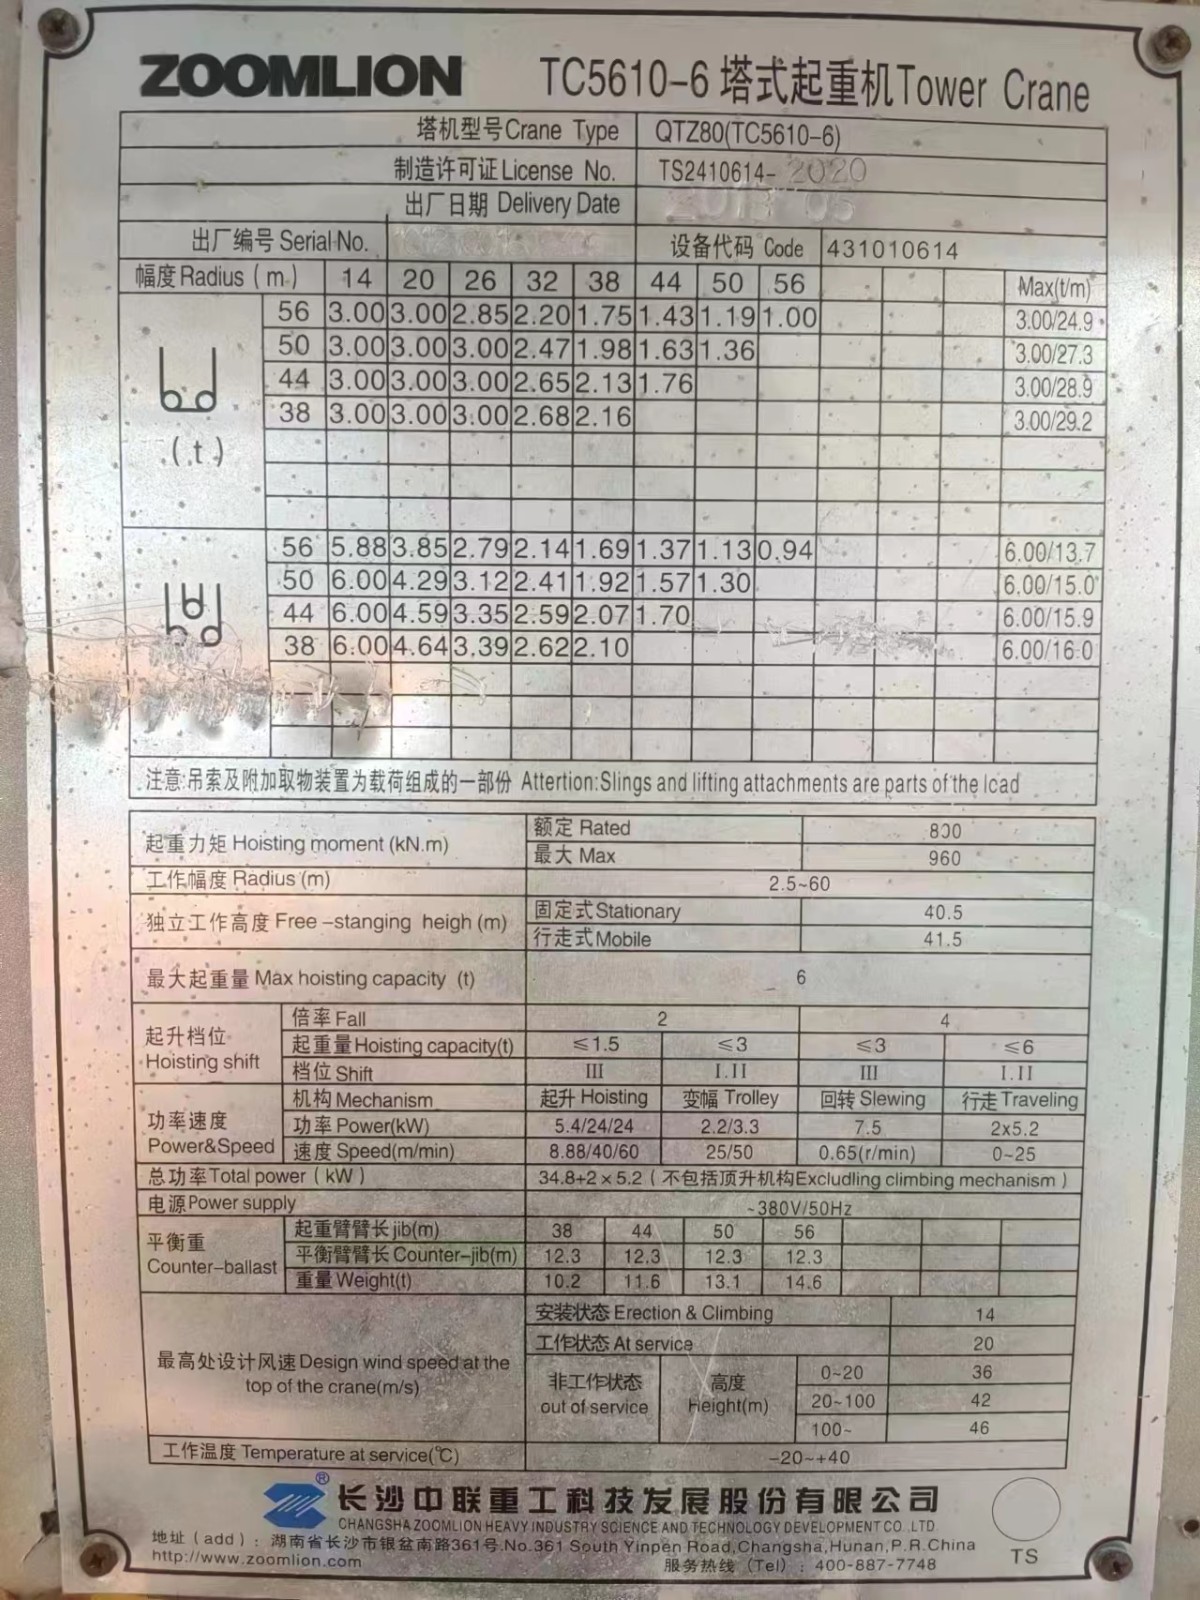 ZOOMLION TC5610-6 塔式起重机Tower Crane
塔机型号Crane Type QTZ80(TC5610-6)
制造许可证License No. TS2410614-2020
出厂日期 Delivery Date
出厂编号 Serial No. 设备代码 Code 431010614
幅度Radius (m) 14 20 26 32 38 44 50 56 Max(t/m)
56 3.00 3.00 2.85 2.20 1.75 1.43 1.19 1.00 3.00/24.9
50 3.00 3.00 3.00 2.47 1.98 1.63 1.36 3.00/27.3
44 3.00 3.00 3.00 2.65 2.13 1.76 3.00/28.9
38 3.00 3.00 3.00 2.68 2.16 3.00/29.2
(t)
56 5.88 3.85 2.79 2.14 1.69 1.37 1.13 0.94 6.00/13.7
50 6.00 4.29 3.12 2.41 1.92 1.57 1.30 6.00/15.0
44 6.00 4.59 3.35 2.59 2.07 1.70 6.00/15.9
38 6.00 4.64 3.39 2.62 2.10 6.00/16.0
注意:吊索及附加取物装置为载荷组成的一部份 Attertion:Slings and lifting attachments are parts of the lcad
起重力矩 Hoisting moment (kN.m) 额定 Rated 800
最大 Max 960
工作幅度 Radius (m) 2.5~60
独立工作高度 Free-stanging heigh (m) 固定式Stationary 40.5
行走式Mobile 41.5
最大起重量 Max hoisting capacity (t) 6
起升档位 Hoisting shift 倍率 Fall 2 4
起重量Hoisting capacity(t) ≤1.5 ≤3 ≤3 ≤6
档位 Shift III I.II III I.II
功率速度 Power&Speed 机构 Mechanism 起升 Hoisting 变幅 Trolley 回转 Slewing 行走Traveling
功率 Power(kW) 5.4/24/24 2.2/3.3 7.5 2x5.2
速度 Speed(m/min) 8.88/40/60 25/50 0.65(r/min) 0~25
总功率Total power (kW) 34.8+2×5.2(不包括顶升机构Excludling climbing mechanism)
电源Power supply ~380V/50Hz
平衡重 Counter-ballast 起重臂臂长 jib(m) 38 44 50 56
平衡臂臂长 Counter-jib(m) 12.3 12.3 12.3 12.3
重量 Weight(t) 10.2 11.6 13.1 14.6
最高处设计风速Design wind speed at the top of the crane(m/s) 安装状态 Erection & Climbing 14
工作状态 At service 20
非工作状态 out of service 高度 Height(m) 0~20 36
20~100 42
100~ 46
工作温度 Temperature at service(℃) -20~+40
® 长沙中联重工科技发展股份有限公司
CHANGSHA ZOOMLION HEAVY INDUSTRY SCIENCE AND TECHNOLOGY DEVELOPMENT CO.,LTD.
地址(add):湖南省长沙市银盆南路361号.No.361 South Yinpen Road,Changsha,Hunan,P.R.China
http://www.zoomlion.com 服务热线(Tel):400-887-7748
TS